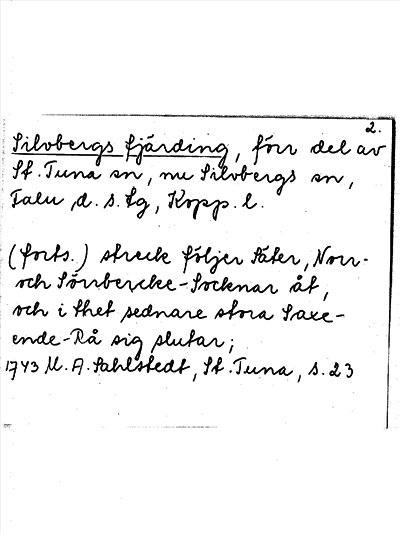 2.
Silvbergs fjärding, förr del av
St. Tuna sn, nu Silvbergs sn,
Falu d. s. lg, Kopp. l.
(forts.) streck följer Säter, Norr-
och Sörrbercke-Socknar åt,
och i thet sednare stora Saxe-
ende-Rå sig slutar;
1743 M. A. Sahlstedt, St. Tuna, s. 23